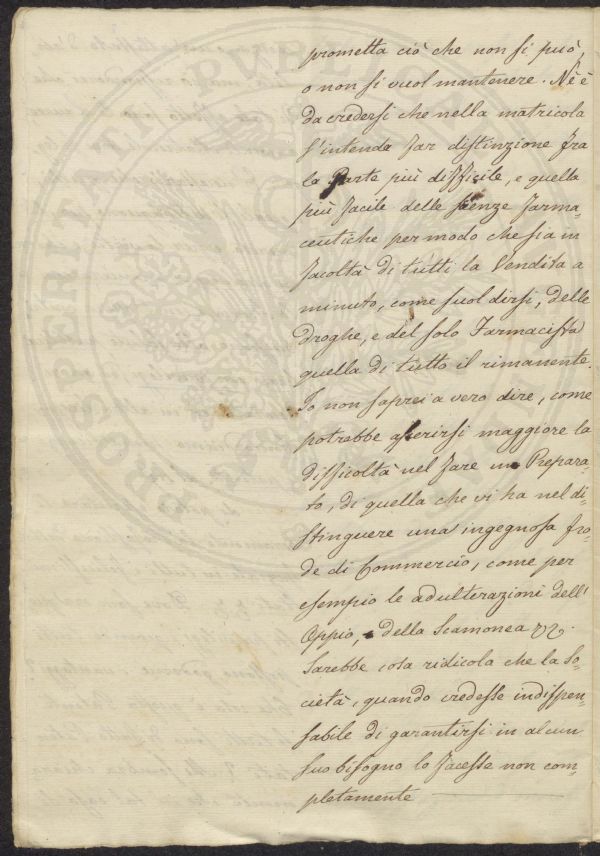 prometta ciò che non si può,
o non si vuol mantenere. Nè è
da credersi che nella matricola
s'intenda far distinzione fra
la Parte più difficile, e quella
più facile delle scienze farma=
ceutiche per modo che sia in
facoltà di tutti la Vendita a
minuto, come suol dirsi, delle
droghe, e del solo Farmacista
quella di tutto il rimanente.
Io non saprei a vero dire, come
potrebbe asserirsi maggiore la
difficoltà nel fare un Prepara=
to, di quella che vi ha nel di=
stinguere una ingegnosa fro=
de di Commercio, come per
esempio le adulterazioni dell'
Oppio, della Scamonea
Sarebbe cosa ridicola che la So=
cietà, quando credesse indispen=
sabile di garantirsi in alcun
suo bisogno lo facesse non com=
pletamente